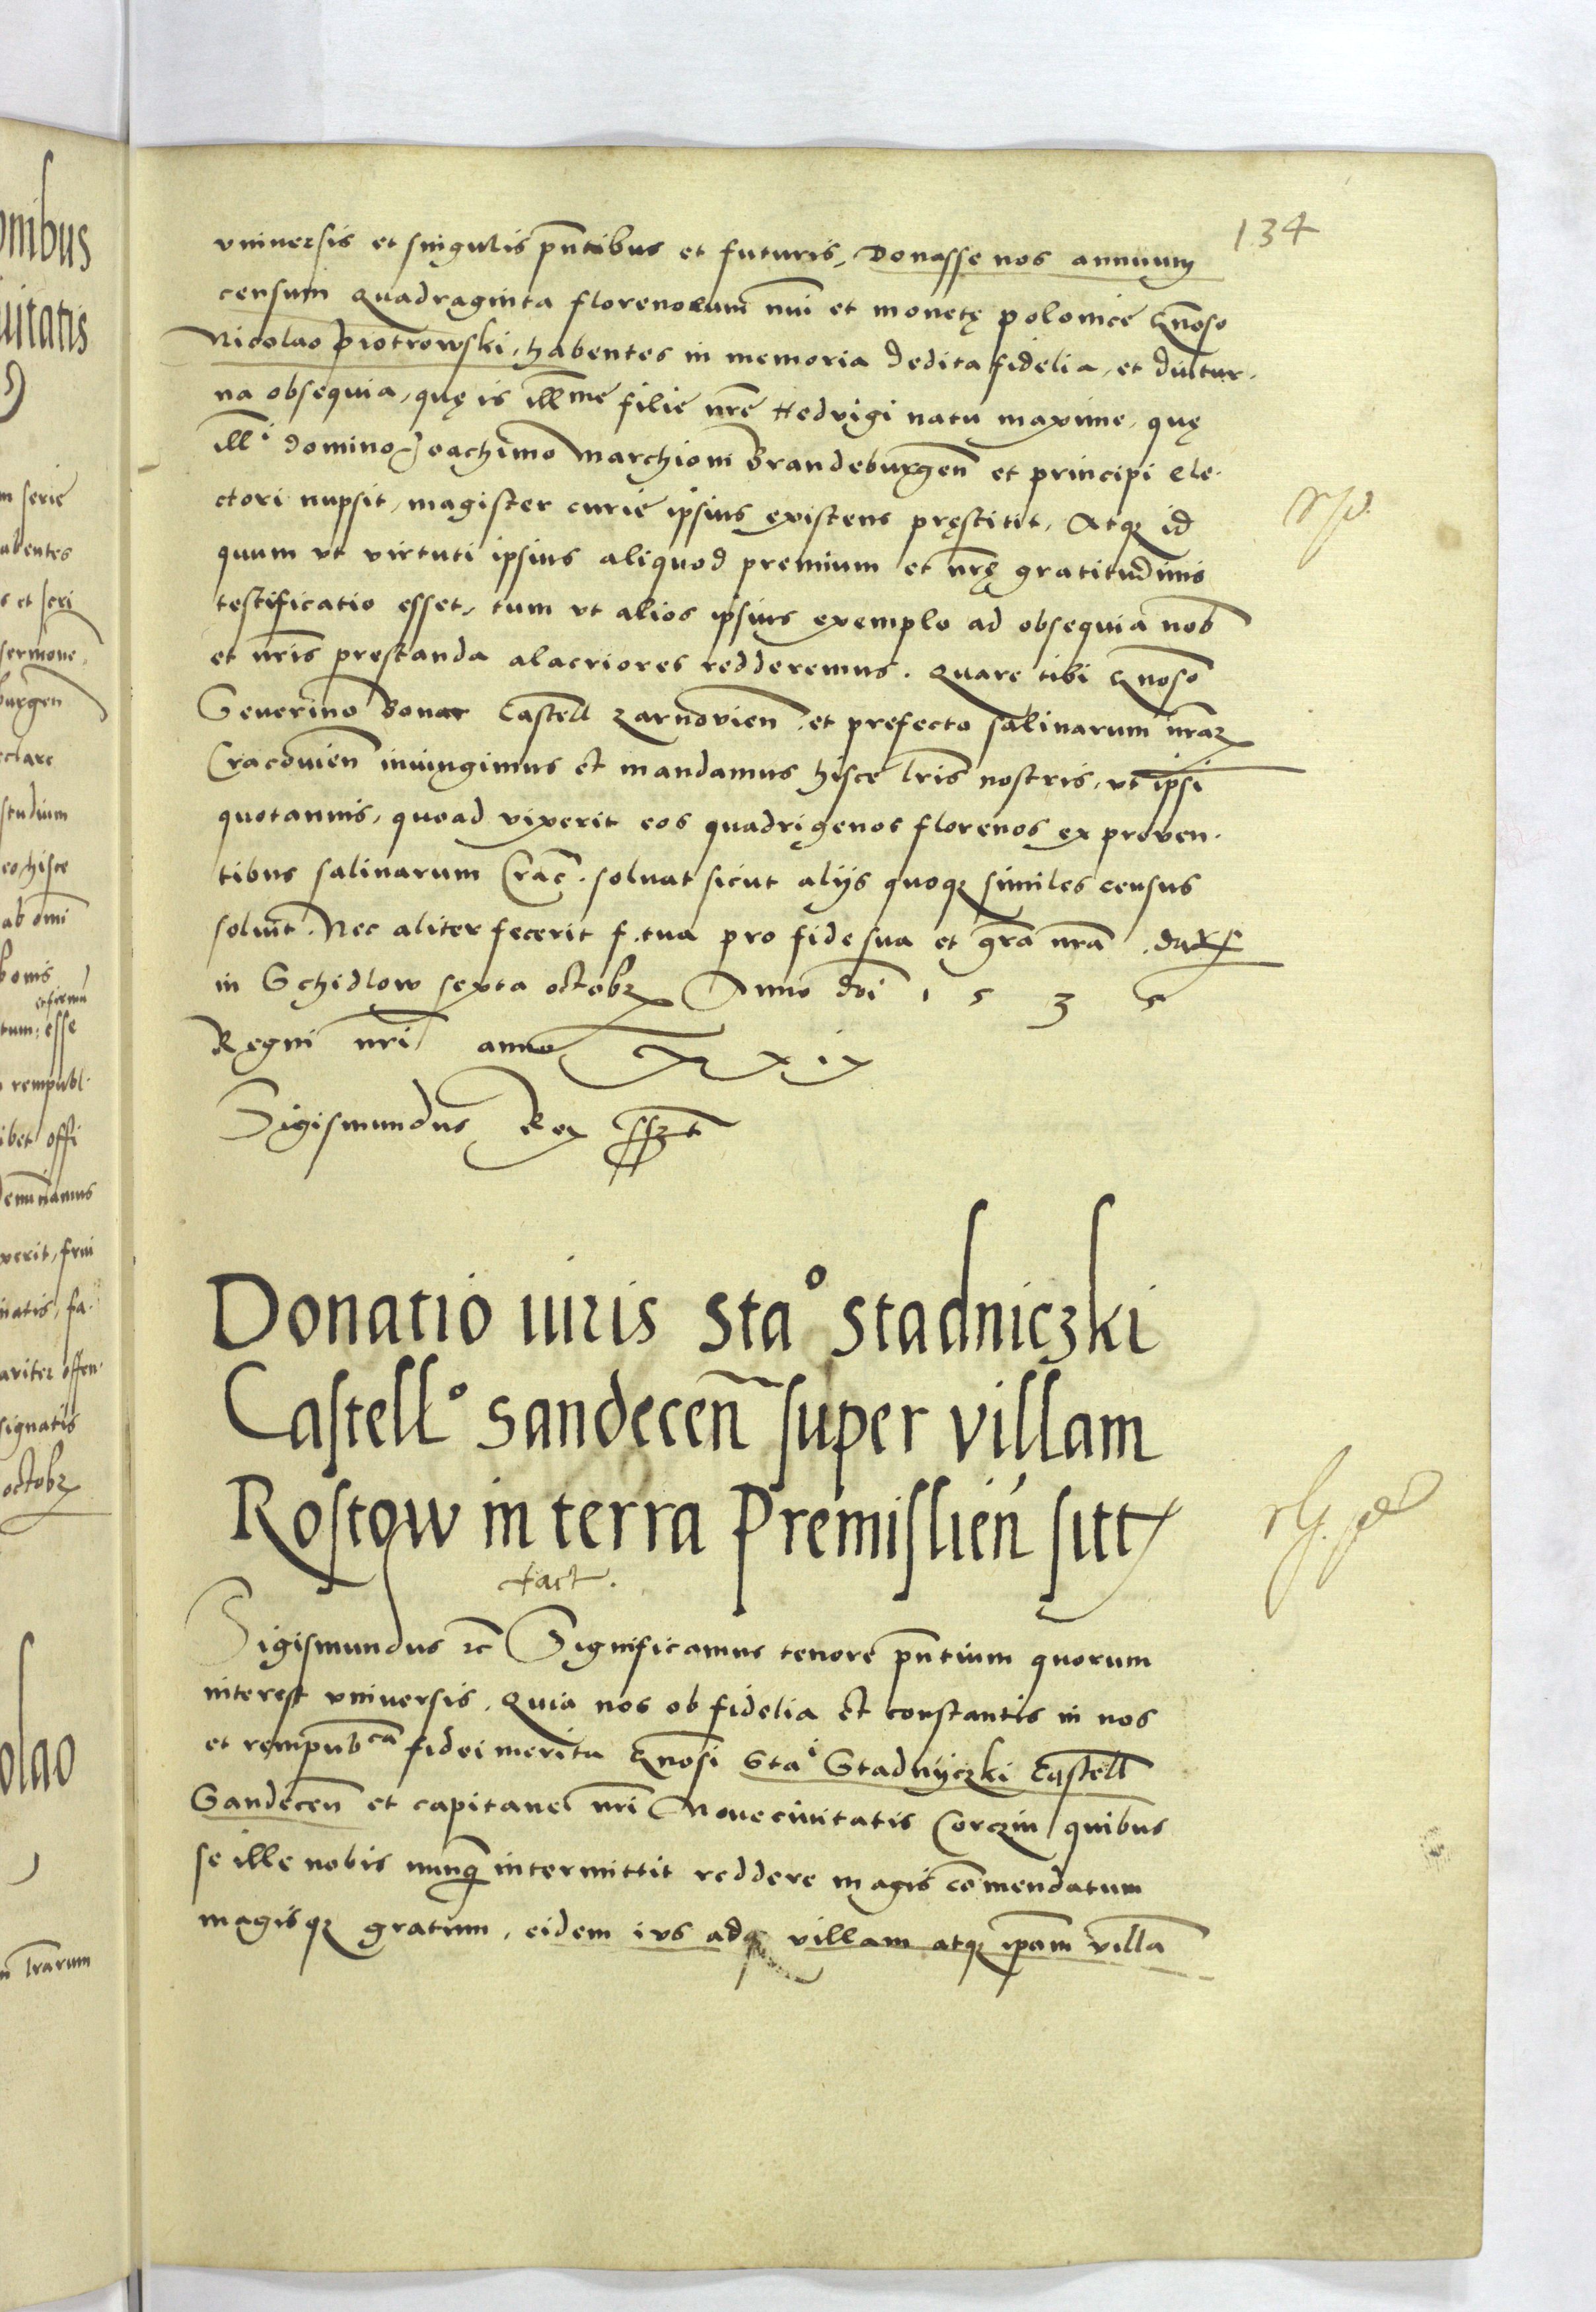 134
vniuersis et singulis pn̄tibus et futuris, Donasse nos annuum
censum quadraginta florenorum nūi et monetę polonice Gn̄oso
Nicolao Piotrowski, habentes in memoria dedita fidelia, et diutur-
na obsequia, quę is illme filie nr̄e Hedvigi natu maxime, quę
illi domino Joachimo Marchioni Brandeburgen̄ et principi ele-
ctori nupsit, magister curie ipsius existens pręstitit, Atqꝫ id
quum vt virtuti ipsius aliquod premium et nr̄ę gratitudinis
testificatio esset, tum vt alios ipsius exemplo ad obsequia nob̄
et nr̄is prestanda alacriores redderemus. Quare tibi Gn̄oso
Seuerino Boner Castell̄ zarnovien̄ et prefecto salinarum nr̄aꝝ
Cracovien̄ iniungimus et mandamus hisce lr̄is nostris, vt ipsi
quotannis, quoad vixerit eos quadrigenos florenos ex proven-
tibus salinarum Crac̄. soluat sicut alijs quoqꝫ similes census
soluit. Nec aliter fecerit f. tua pro fide sua et gr̄a nr̄a. Datꝭ
in Schidlow sexta octobꝝ Anno dn̄i 1 5 3 5
Regni nr̄i anno XXIX
Sigismundus Rex sszt
Donatio iuris Stao Stadniczki
Castello Sandecen̄ super villam
Rostow in terra Premislien̄ sitt
fact.
Sigismundus ꝛc̄ Significamus tenore pn̄tium quorum
interest vniuersis. Quia nos ob fidelia et constantis in nos
et rempubcā fidei merita Gn̄osi Stai Stadnyczki Castell̄
Sandecen̄ et capitanei nr̄i Novecivitatis Corczin quibus
se ille nobis nunq̄ intermittit reddere magis cōmendatum
magisqꝫ gratum, eidem ius ad villam atqꝫ ip̄am villā